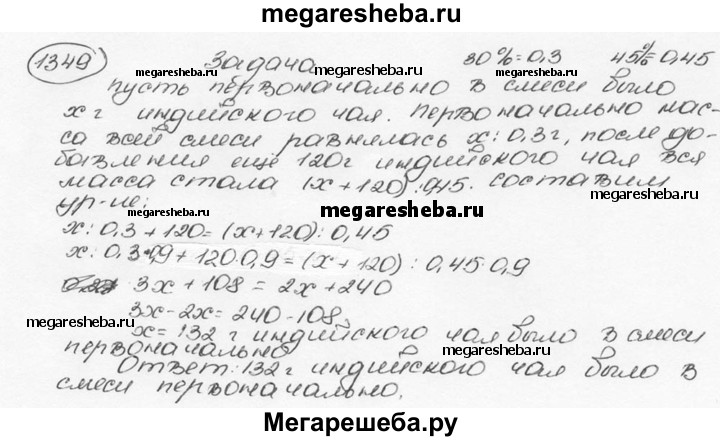 megaresheba.ru
1349 Задача 30%=0,3 45%=0,45
megaresheba.ru megaresheba.ru megaresheba.ru
пусть первоначально в смеси было
x г индийского чая. Первоначально мас-
megaresheba.ru
са всей смеси равнялась x:0,3г, после до-
бавления ещё 120г индийского чая вся
megaresheba.ru megaresheba.ru
масса стала (x+120):0,45. составим
megaresheba.ru
ур-ие:
x:0,3+120=(x+120):0,45
x:0,3·0,9+120·0,9=(x+120):0,45·0,9
megaresheba.ru
3x+108=2x+240
3x-2x=240-108
megaresheba.ru megaresheba.ru
x=132 г индийского чая было в смеси
первоначально
megaresheba.ru megaresheba.ru
Ответ:132г индийского чая было в
смеси первоначально.
Мегарешеба.ру